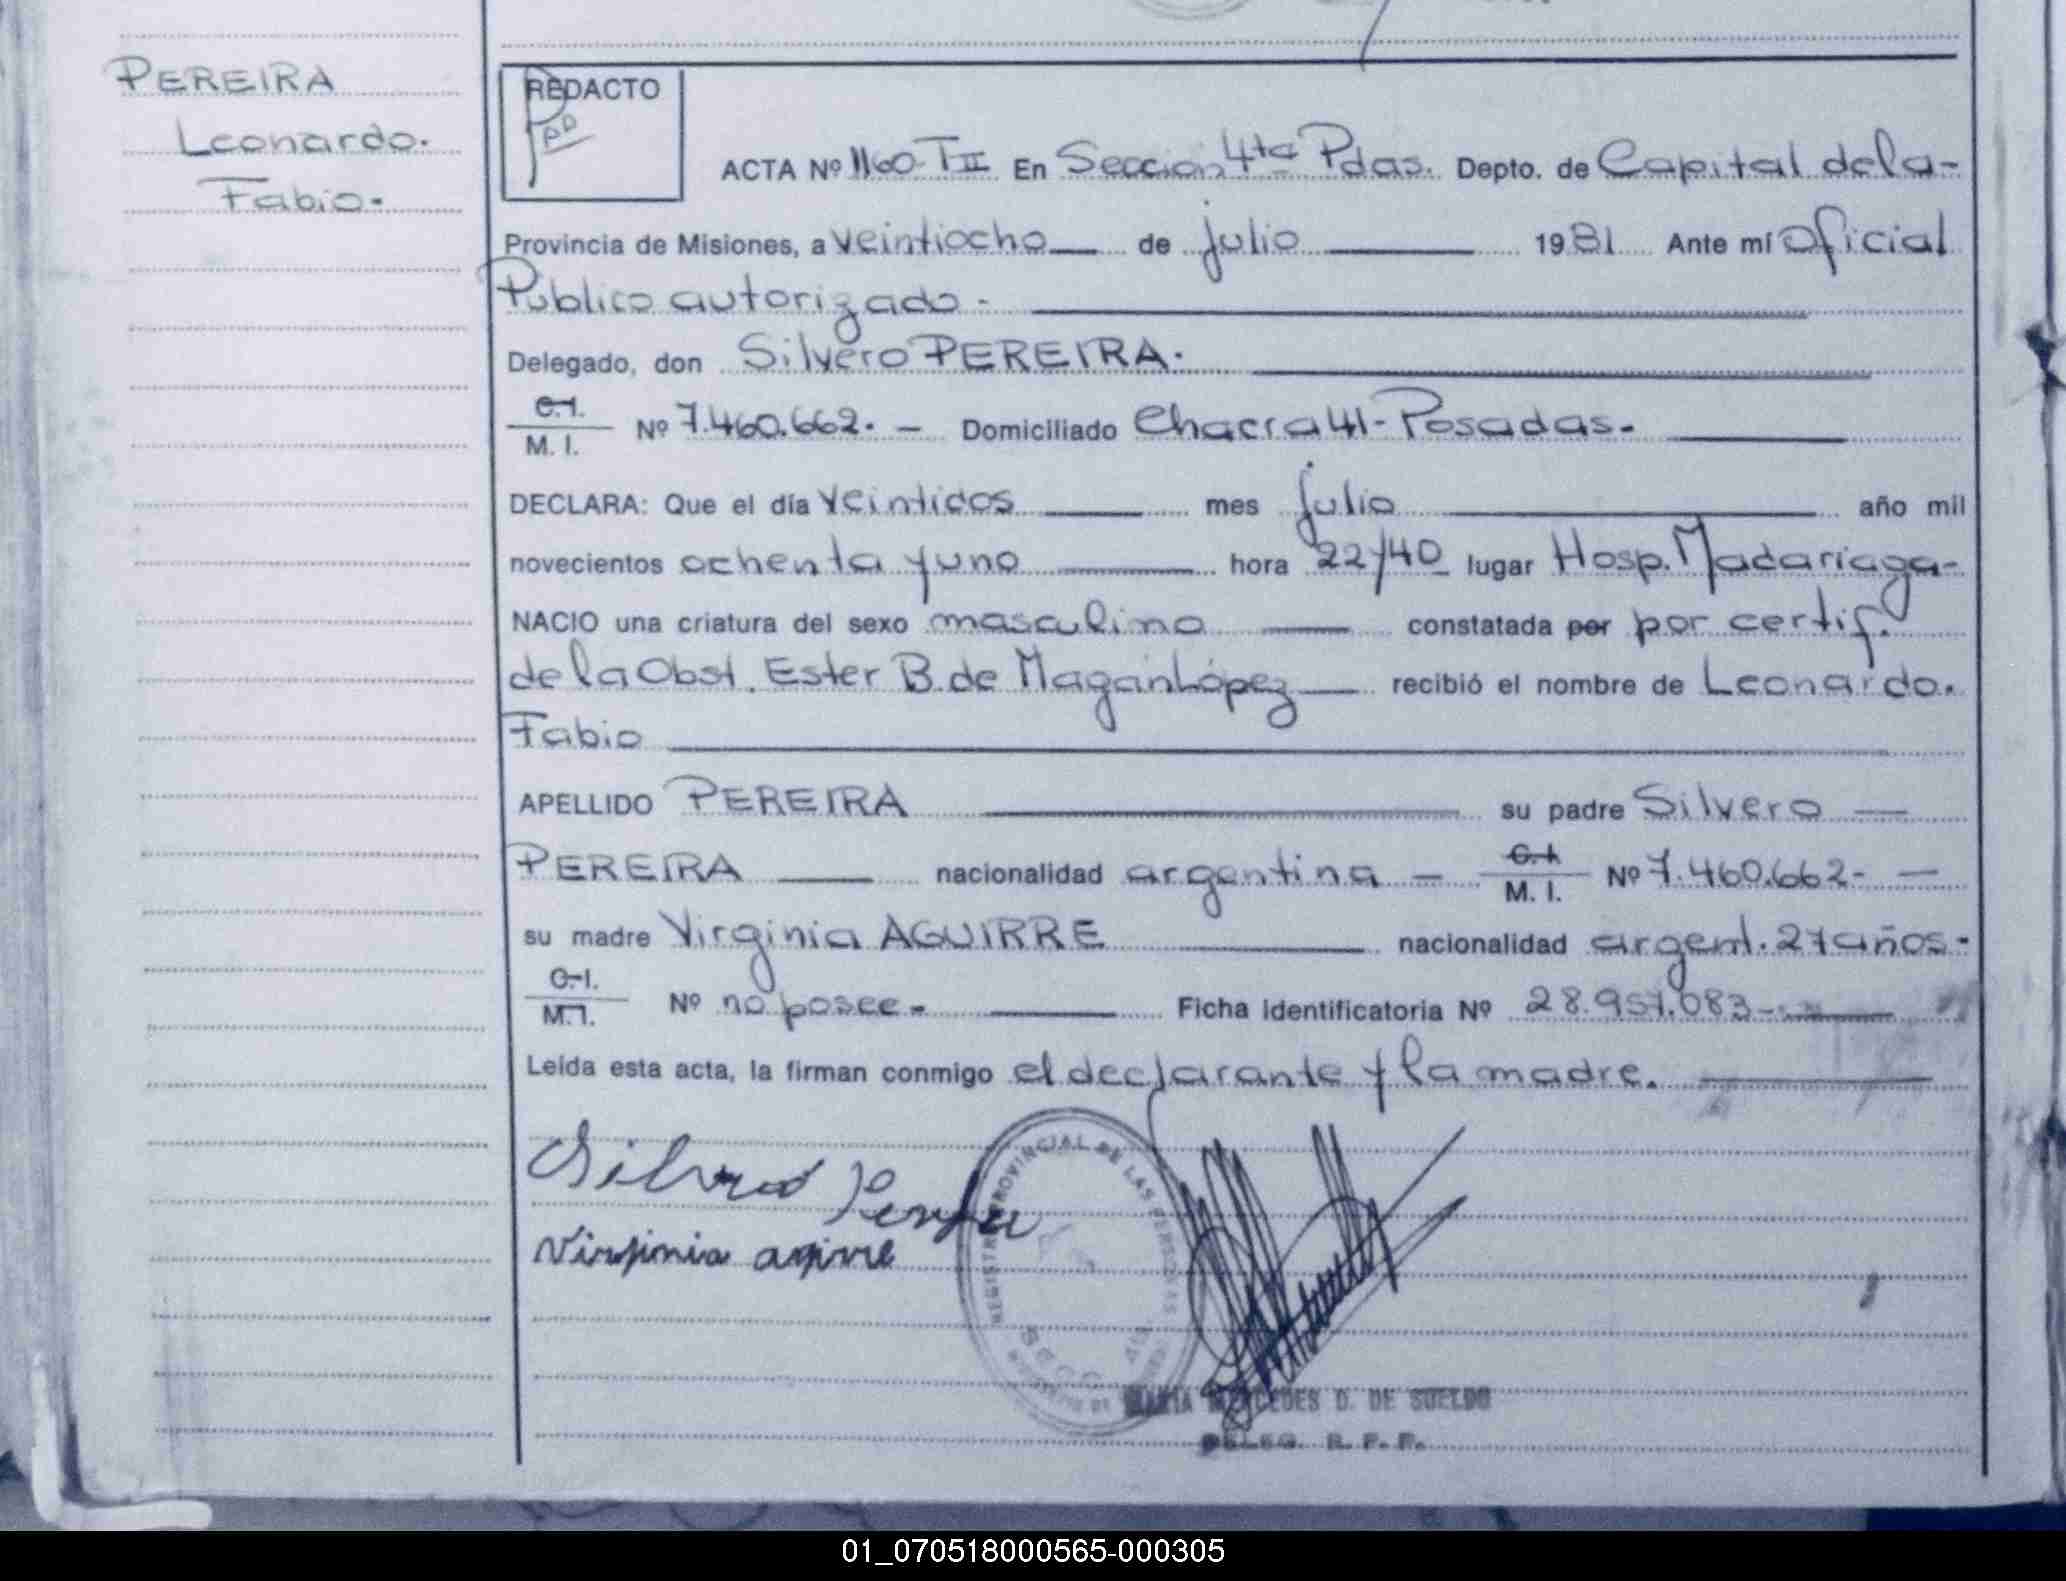 PEREIRA
Leonardo.
Fabio.
REDACTO
ACTA Nº 1160 TII En Sección 4ta Pdas. Depto. de Capital de la-
Provincia de Misiones, a veintiocho de julio 1981 Ante mí Oficial
Publico autorizado -
Delegado, don Silvero PEREIRA.
C.I.
M. I. Nº 7.460.662. - Domiciliado Chacra 41 - Posadas.
DECLARA: Que el día veintidos mes julio año mil
novecientos ochenta y uno hora 22/40 lugar Hosp. Madariaga-
NACIO una criatura del sexo masculino constatada por por certif.
de la Obst. Ester B. de Magan López recibió el nombre de Leonardo.
Fabio
APELLIDO PEREIRA su padre Silvero
PEREIRA nacionalidad argentina - C.I. M. I. Nº 7.460.662- -
su madre Virginia AGUIRRE nacionalidad argent. 27 años-
C.I.
M.I. Nº no posee- Ficha identificatoria Nº 28.957.083-
Leída esta acta, la firman conmigo el declarante y la madre.
Silvero Pereira
Virjinia agirre
REGISTRO PROVINCIAL DE LAS PERSONAS
MARIA MERCEDES D. DE SUELDO
DELEG. R. P. P.
01_070518000565-000305